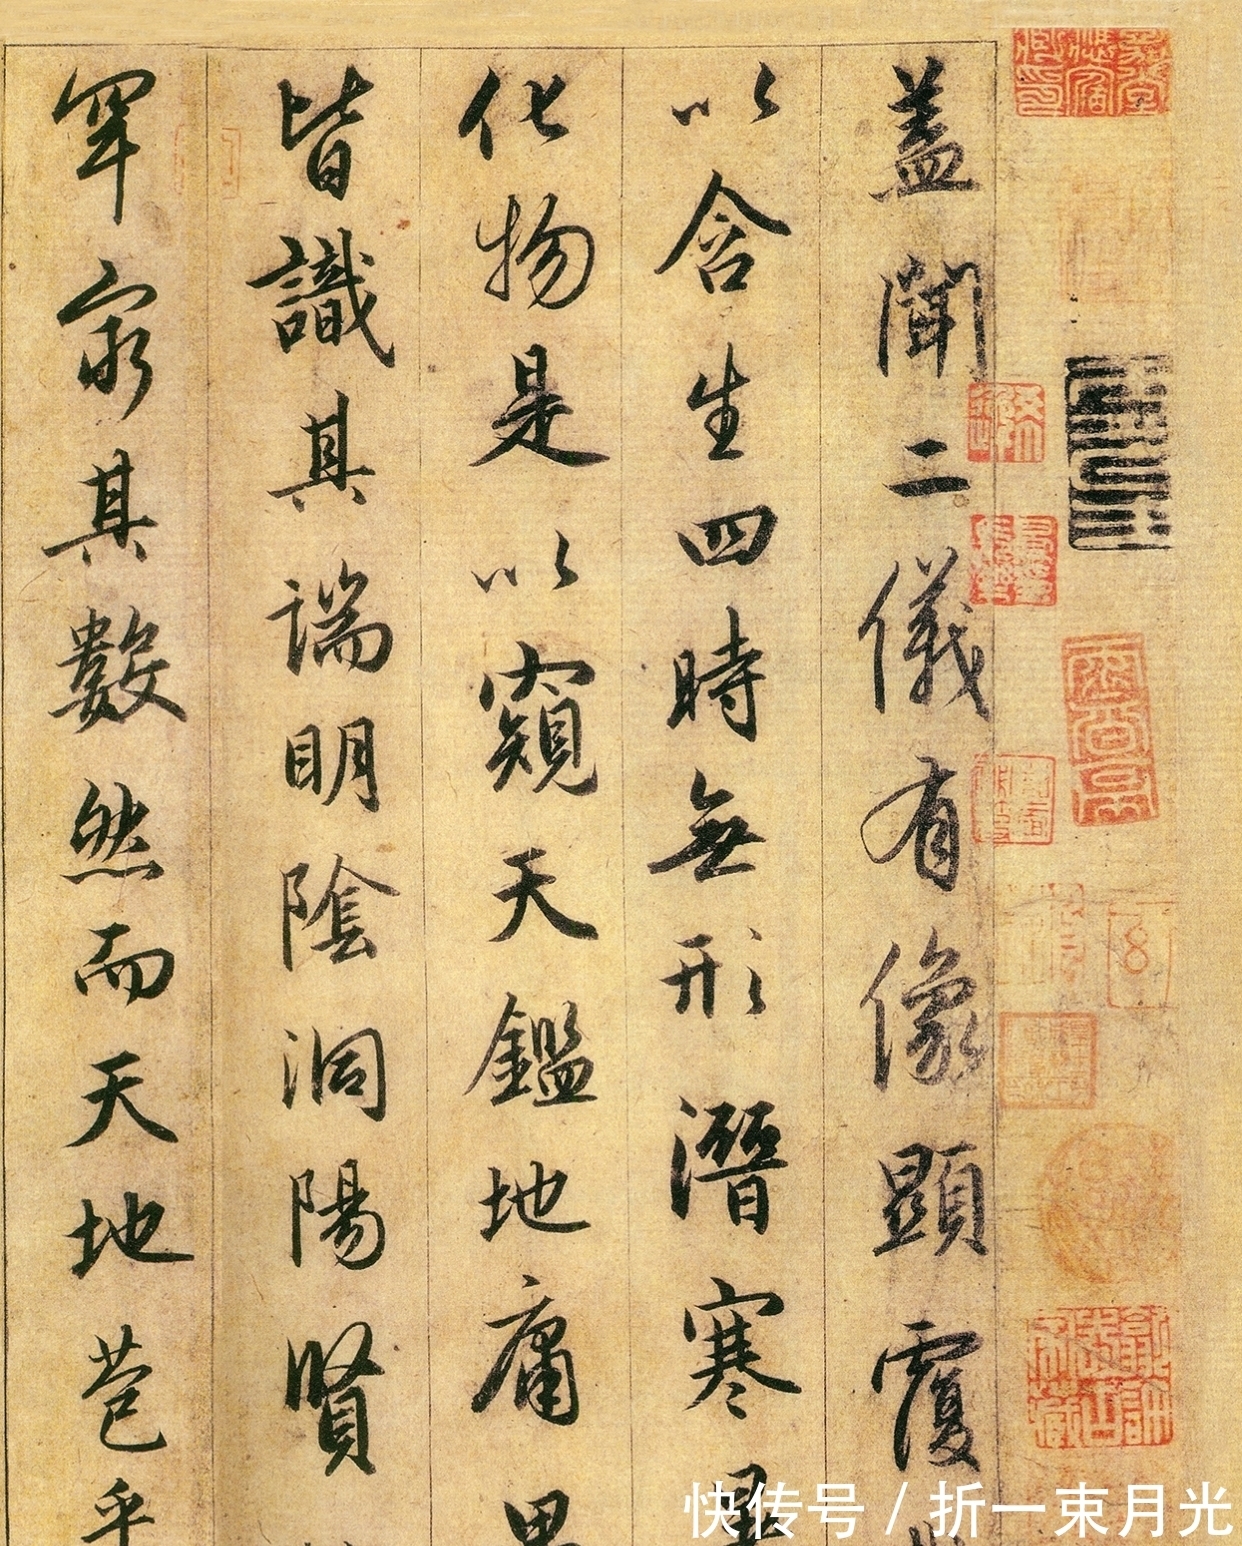 蓋聞二儀有像顯覆
以含生四時無形潛寒
化物是以窺天鑑地庸
皆識其端明陰洞陽賢
罕窮其數然而天地苞乎
快传号 / 折一束月光